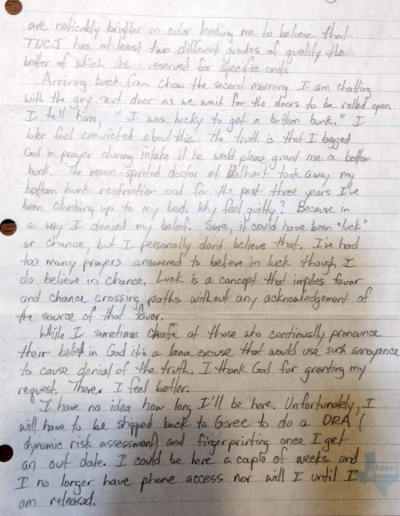 are noticably brighter in color leading me to believe that
TDCJ has at least two different grades of quality the
better of which is reserved for specific units.
Arriving back from chow the second morning I am chatting
with the guy next door as we wait for the doors to be rolled open
I tell him, "I was lucky to get a bottom bunk." I
later feel convicted about this. The truth is that I begged
God in prayer during intake if he would please grant me a bottom
bunk. The mean-spirited doctor at Dalhart took away my
bottom bunk restriction and for the past three years I've
been climbing up to my bed. Why feel guilty? Because in
a way I denied my belief. Sure, it could have been "luck"
or chance, but I personally don't believe that. I've had
too many prayers answered to believe in luck though I
do believe in chance. Luck is a concept that implies favor
and chance crossing paths without any acknowledgement of
the source of that favor.
While I sometimes chafe at those who continually pronounce
their belief in God it is a lame excuse that would use such annoyance
to cause denial of the truth. I thank God for granting my
request. There. I feel better.
I have no idea how long I'll be here. Unfortunately, I
will have to be shipped back to Goree to do a DRA (
dynamic risk assessment) and fingerprinting once I get
an out date. I could be here a couple of weeks and
I no longer have phone access nor will I until I
am released.